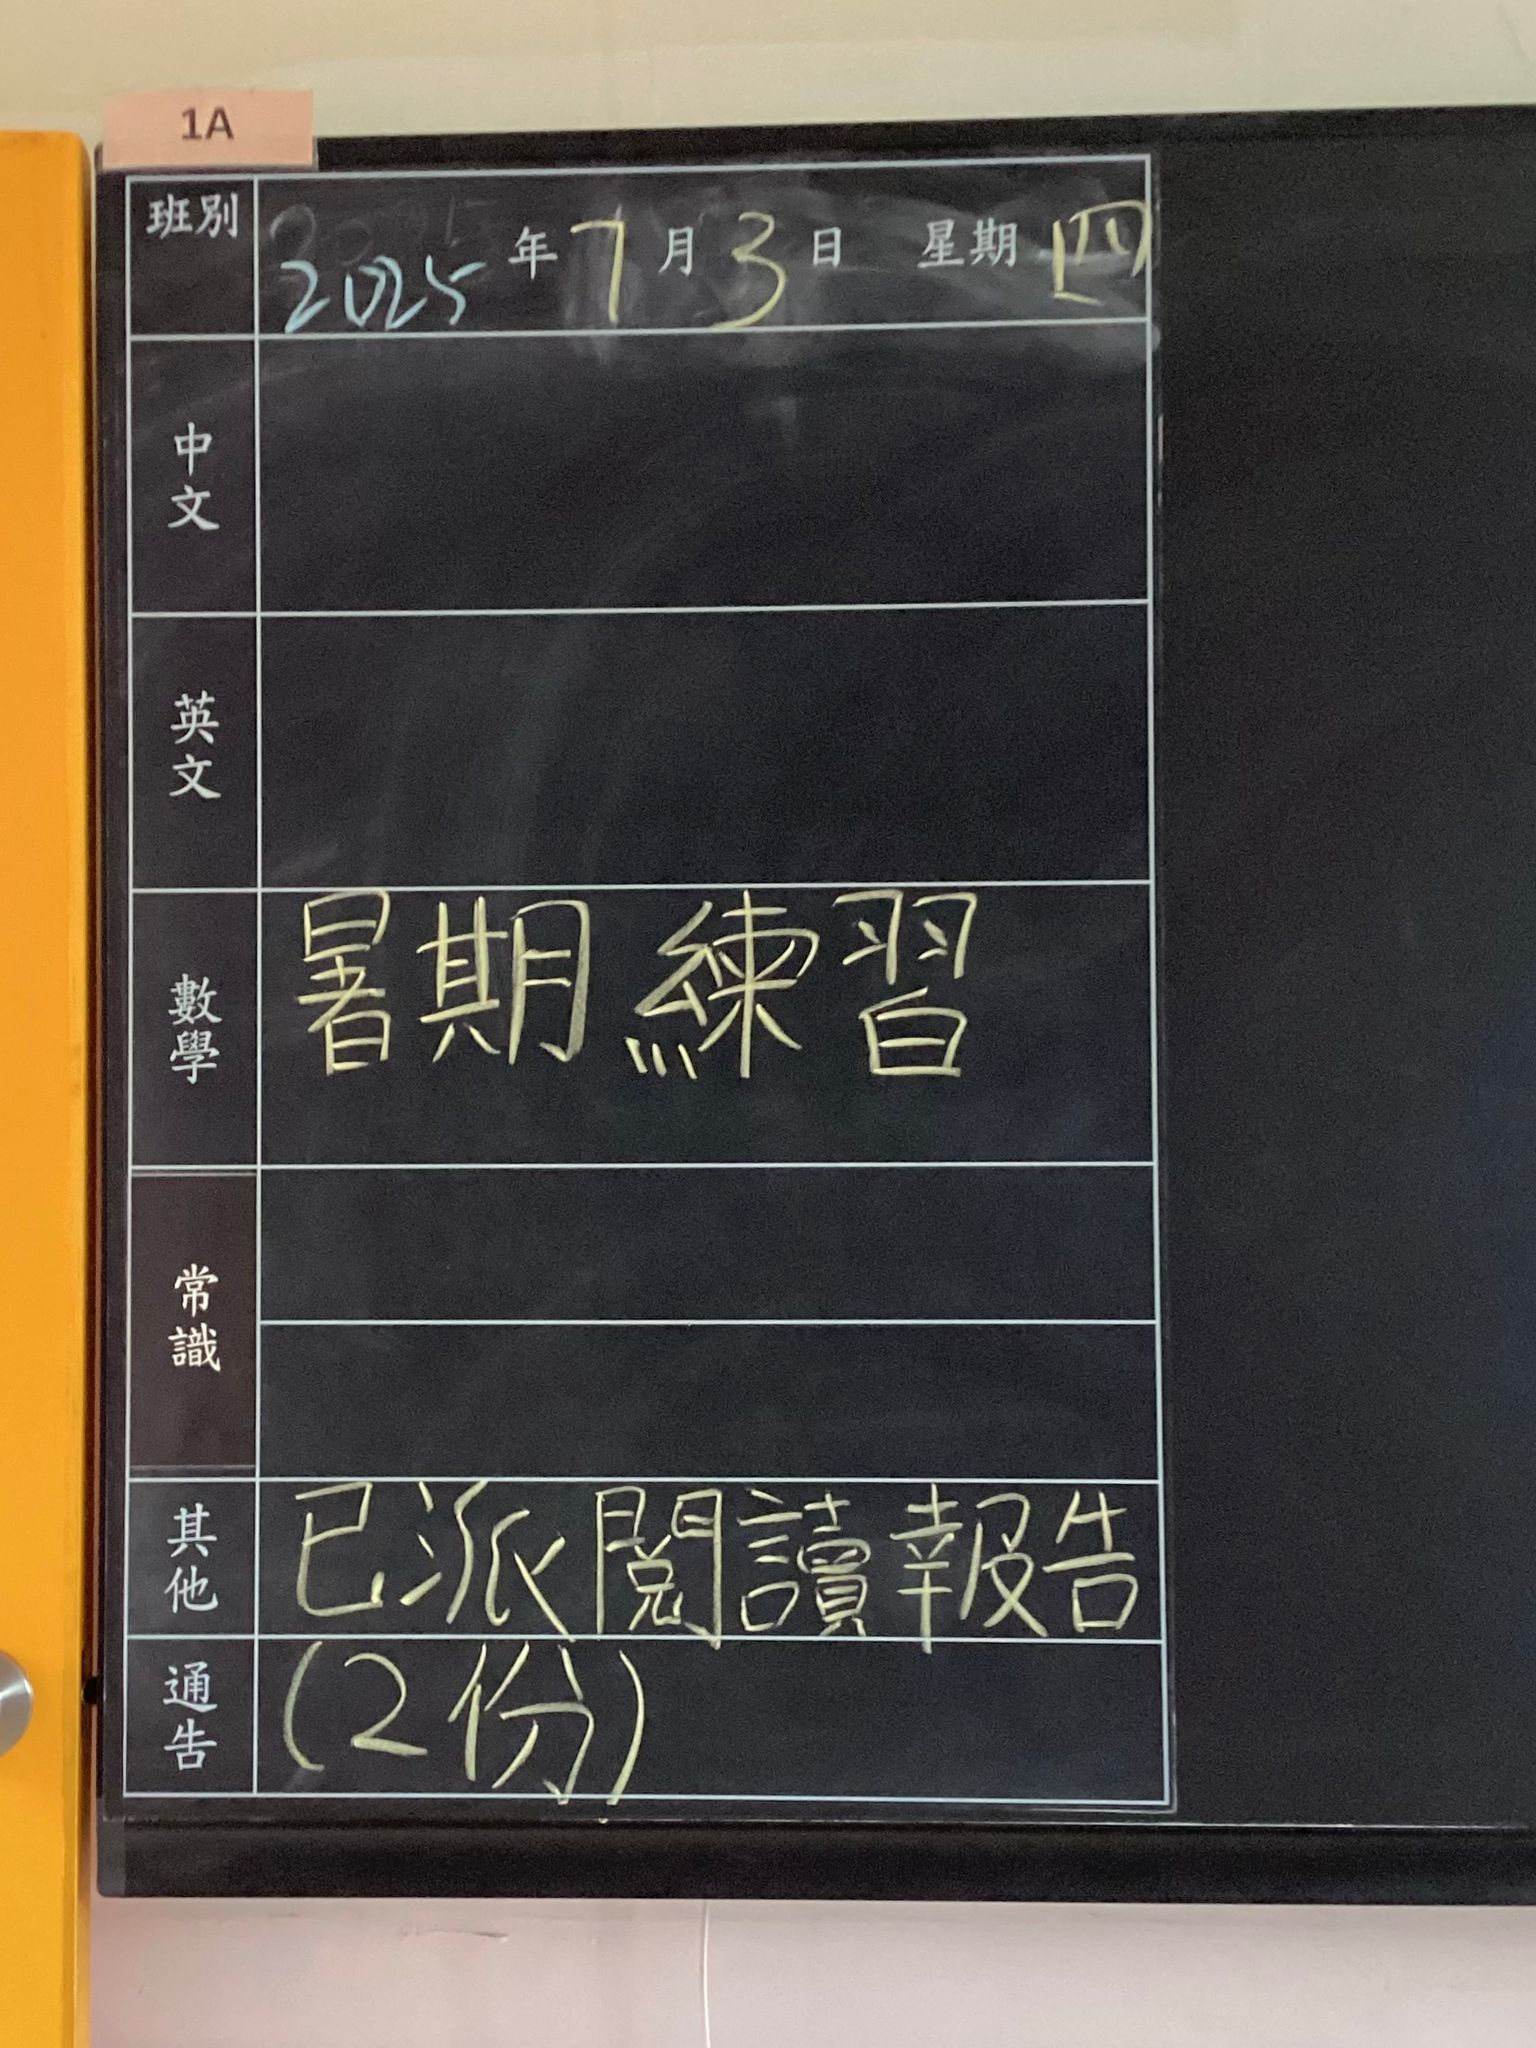 1A
班別 2025年7月3日 星期四
中文
英文
數學 暑期練習
常識
其他 已派閱讀報告
通告 (2份)